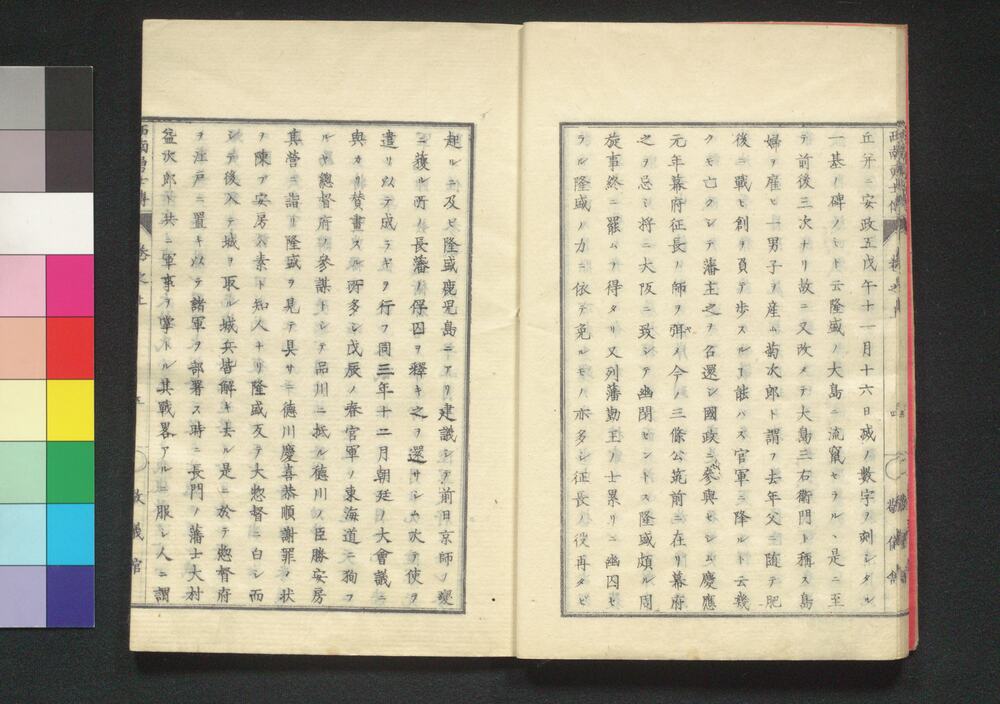 丘牙ニ安政五戊午十一月十六日滅ノ數字ヲ刻シタル
一基ノ碑ノミト云隆盛ノ大島ニ流竄セラル、是ニ至
テ前後三次ナリ故ニ又改メテ大島三右衛門ト稱ス島
婦ヲ雇ヒ一男子ヲ産ム菊次郎ト謂フ去年父ニ随テ肥
後ニ戰ヒ創ヲ負テ歩スル丁能ハス官軍ニ降ルト云幾
クモ亡クシテ藩主之ヲ召還シ國政ニ參與セシム慶應
元年幕府征長ノ師ヲ弭メ今ノ三條公筑前ニ在リ幕府
之ヲ忌ミ將ニ大阪ニ致シテ幽閉セントス隆盛頗ル周
旋事終ニ罷ムヲ得タリ又列藩勤王ノ士累リニ幽囚セ
ラル隆盛ノ力ニ依テ免ルモノ亦多シ征長ノ役再タヒ
起ルニ及ヒ隆盛鹿児島ニアリ建議シテ前日京師ノ變
ニ獲ル所ノ長藩ノ俘囚ヲ釋キ之ヲ還サシム次テ使ヲ
遣リ以テ成ラキヲ行フ同三年十二月朝廷ノ大會議ニ
與カリ賛畫スル所多シ戊辰ノ春官軍ノ東海道ニ狥フ
ルヤ總督府ノ參謀トシテ品川ニ抵ル徳川ノ臣勝安房
其營ニ詣リ隆盛ヲ見テ具サニ徳川慶喜恭順謝罪ノ状
ヲ陳ブ安房ハ素ト知人ナリ隆盛反テ大惣督ニ白シ而
シテ後入テ城ヲ取ル城兵皆解キ去ル是ニ於テ惣督府
ヲ江戸ニ置キ以テ諸軍ヲ部署ス時ニ長門ノ藩士大村
益次郎ト共ニ軍事ヲ掌トル其戰畧アルニ服シ人ニ謂